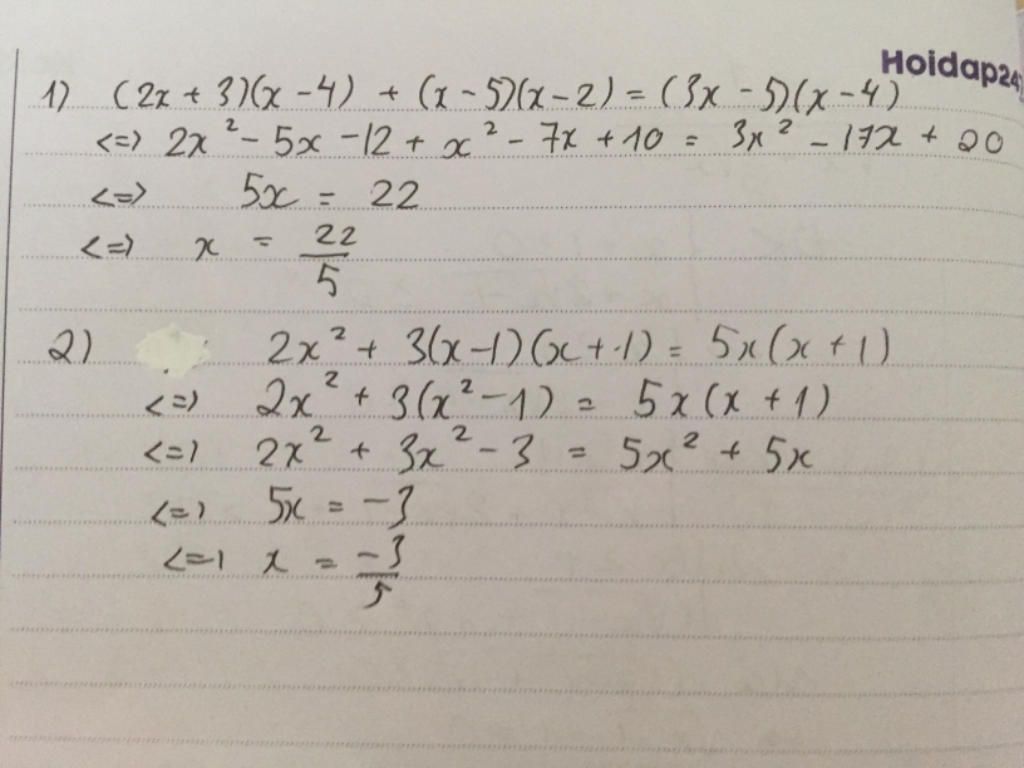 Hoidap24
1) (2x + 3)(x - 4) + (x - 5)(x - 2) = (3x - 5)(x - 4)
<=> 2x² - 5x - 12 + x² - 7x + 10 = 3x² - 17x + 20
<=> 5x = 22
<=> x = 22/5
2) 2x² + 3(x-1)(x+1) = 5x(x+1)
<=> 2x² + 3(x²-1) = 5x(x+1)
<=> 2x² + 3x² - 3 = 5x² + 5x
<=> 5x = -3
<=> x = -3/5